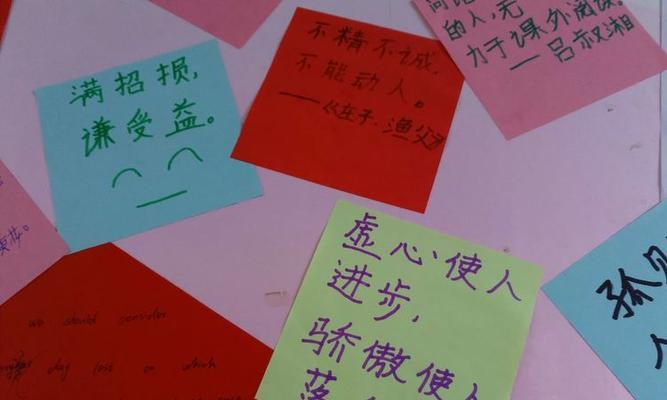 满招损,
谦受益。
不精不诚,
不能动人。
——《庄子·渔父》
的人,无
力于课外阅读。
——吕叔湘
虚心使人
进步,
骄傲使人
落
孤
人
we should consider
day lost on which